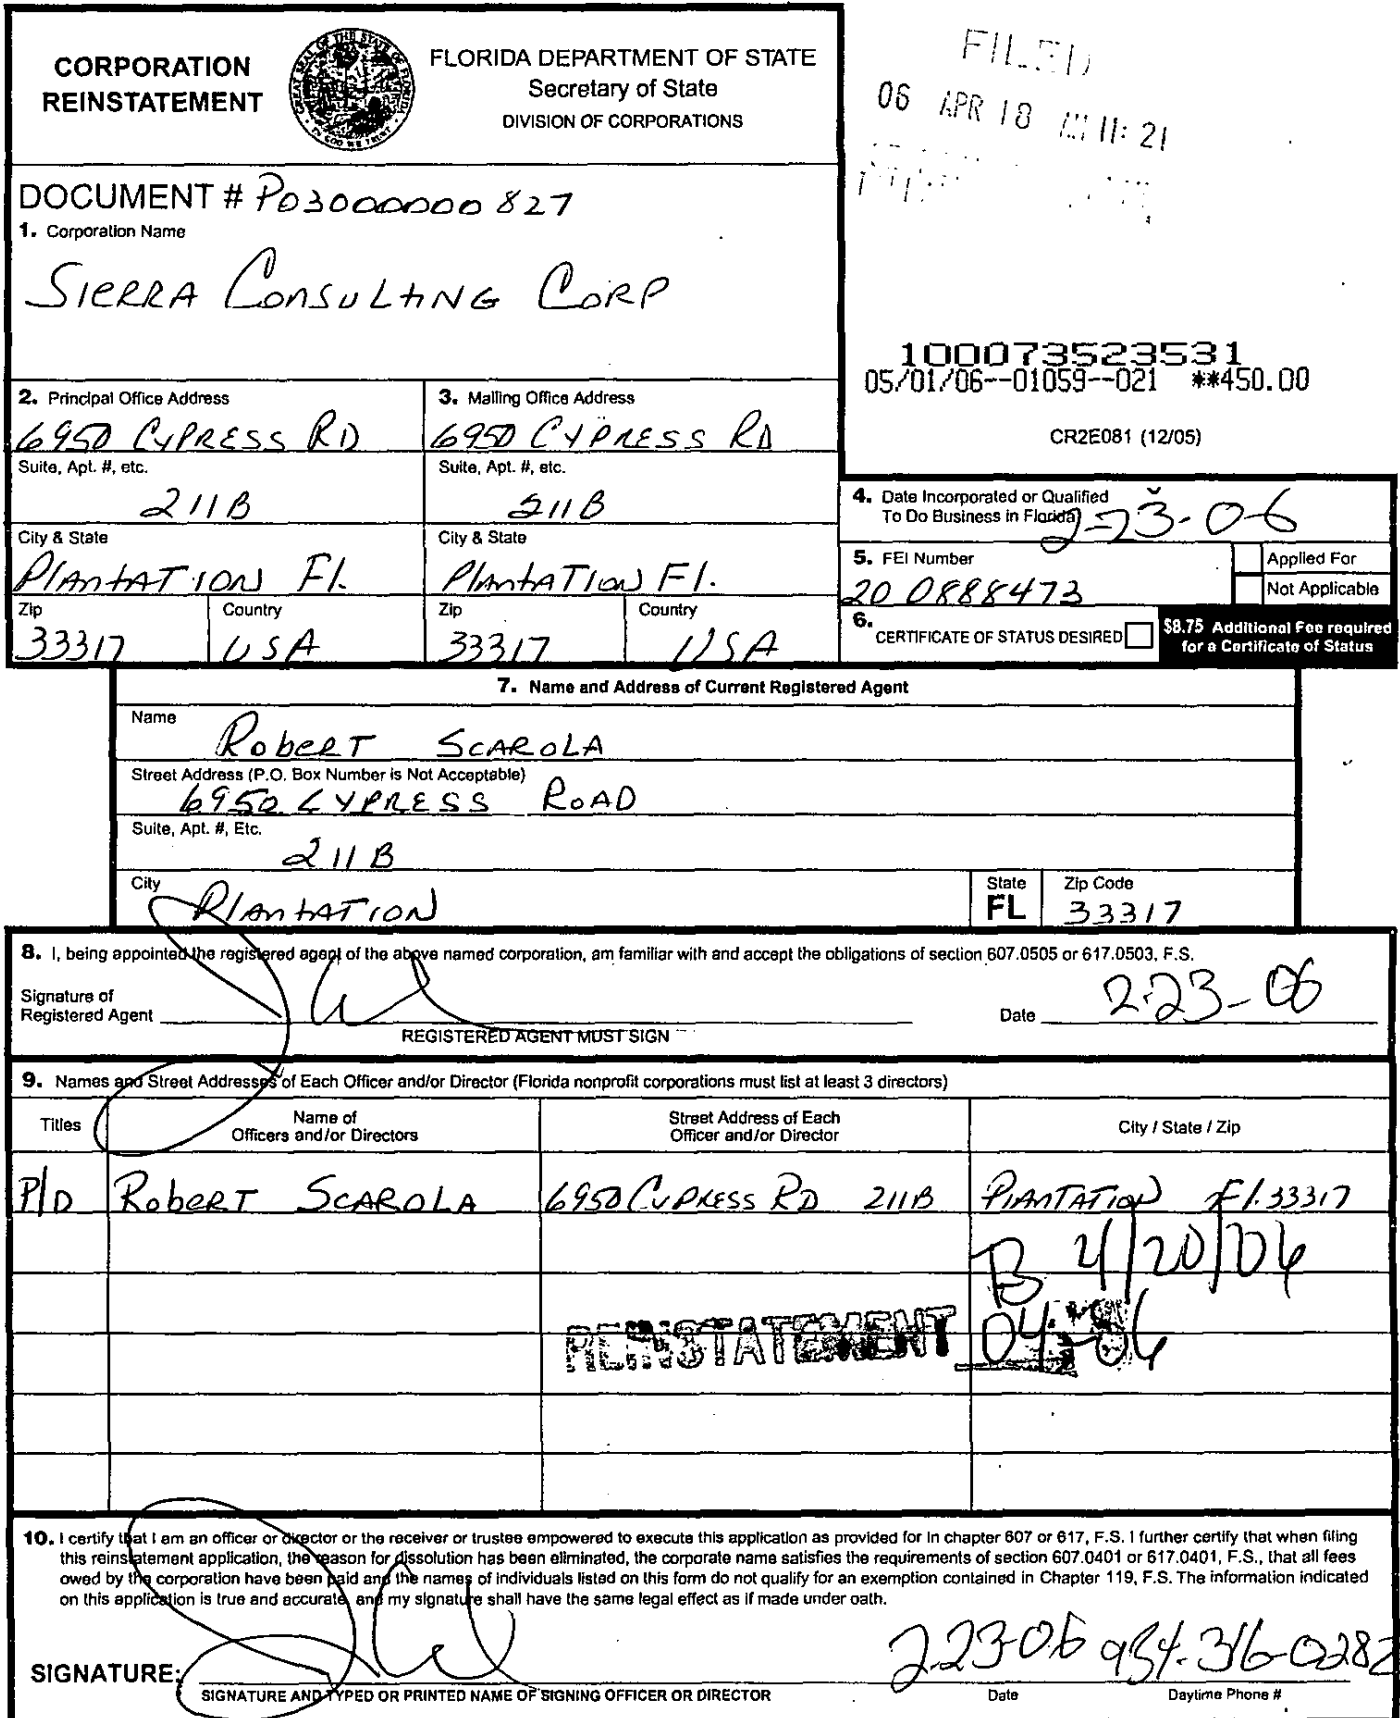 CORPORATION
REINSTATEMENT
FLORIDA DEPARTMENT OF STATE
Secretary of State
DIVISION OF CORPORATIONS
FILED
06 APR 18 AM 11: 21
DOCUMENT # P03000000827
1. Corporation Name
SIERRA CONSULTING CORP
100073523531
05/01/06--01059--021 **450.00
CR2E081 (12/05)
2. Principal Office Address
6950 CYPRESS RD
3. Mailing Office Address
6950 CYPRESS RD
Suite, Apt. #, etc.
211B
Suite, Apt. #, etc.
211B
4. Date Incorporated or Qualified
To Do Business in Florida
2-23-06
City & State
PlantATION Fl.
City & State
PlantATION Fl.
5. FEI Number
20 0888473
Applied For
Not Applicable
Zip
33317
Country
USA
Zip
33317
Country
USA
6. CERTIFICATE OF STATUS DESIRED
$8.75 Additional Fee required
for a Certificate of Status
7. Name and Address of Current Registered Agent
Name
RobeRT SCAROLA
Street Address (P.O. Box Number is Not Acceptable)
6950 CYPRESS ROAD
Suite, Apt. #, Etc.
211B
City
PlantATION
State
FL
Zip Code
33317
8. I, being appointed the registered agent of the above named corporation, am familiar with and accept the obligations of section 607.0505 or 617.0503, F.S.
Signature of
Registered Agent
Date 2-23-06
REGISTERED AGENT MUST SIGN
9. Names and Street Addresses of Each Officer and/or Director (Florida nonprofit corporations must list at least 3 directors)
Titles
Name of
Officers and/or Directors
Street Address of Each
Officer and/or Director
City / State / Zip
P/D RobeRT SCAROLA 6950 CYPRESS RD 211B PlANTATION Fl. 33317
B 4/20/06
REINSTATEMENT 04-06
10. I certify that I am an officer or director or the receiver or trustee empowered to execute this application as provided for in chapter 607 or 617, F.S. I further certify that when filing
this reinstatement application, the reason for dissolution has been eliminated, the corporate name satisfies the requirements of section 607.0401 or 617.0401, F.S., that all fees
owed by the corporation have been paid and the names of individuals listed on this form do not qualify for an exemption contained in Chapter 119, F.S. The information indicated
on this application is true and accurate, and my signature shall have the same legal effect as if made under oath.
SIGNATURE:
2-23-06 954-316-0282
SIGNATURE AND TYPED OR PRINTED NAME OF SIGNING OFFICER OR DIRECTOR
Date
Daytime Phone #